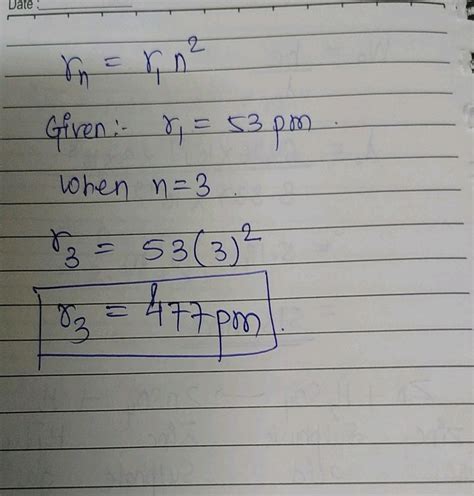 Date :
rₙ = r₁ n²
Given:- r₁ = 53 pm .
when n=3 .
r₃ = 53(3)²
r₃ = 477 pm .